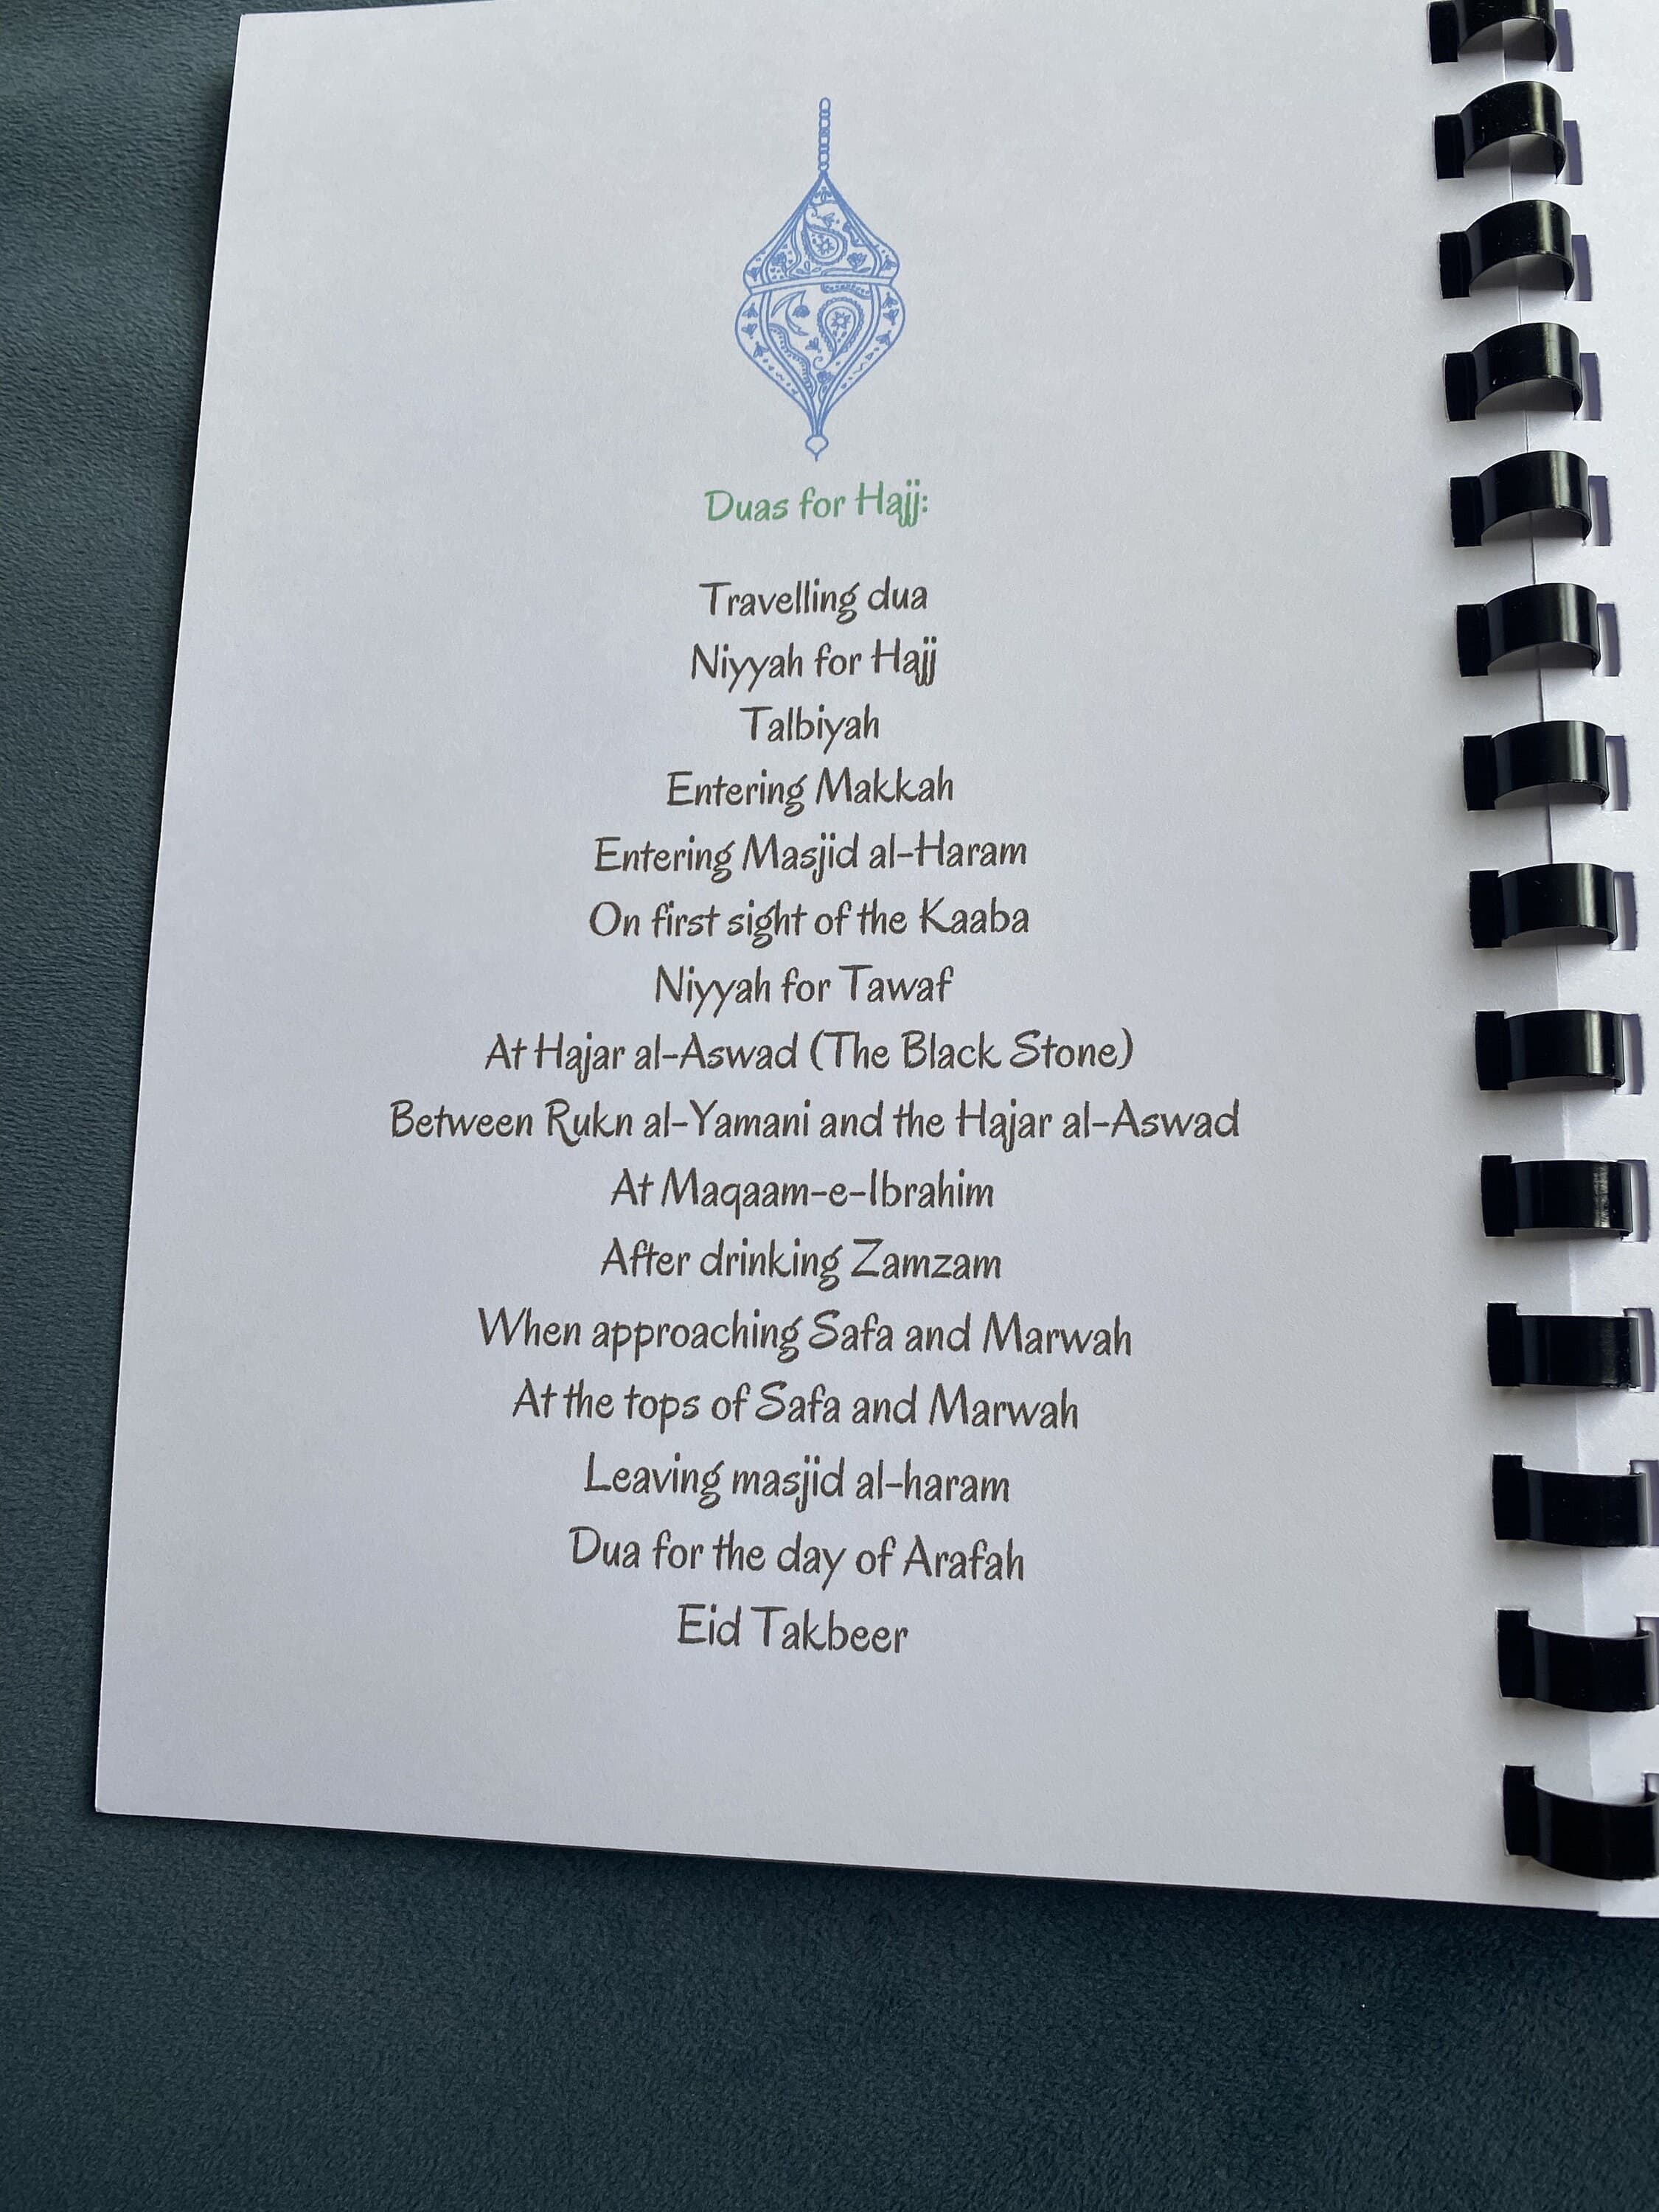 Duas for Hajj:
Travelling dua
Niyyah for Hajj
Talbiyah
Entering Makkah
Entering Masjid al-Haram
On first sight of the Kaaba
Niyyah for Tawaf
At Hajar al-Aswad (The Black Stone)
Between Rukn al-Yamani and the Hajar al-Aswad
At Maqaam-e-Ibrahim
After drinking Zamzam
When approaching Safa and Marwah
At the tops of Safa and Marwah
Leaving masjid al-haram
Dua for the day of Arafah
Eid Takbeer